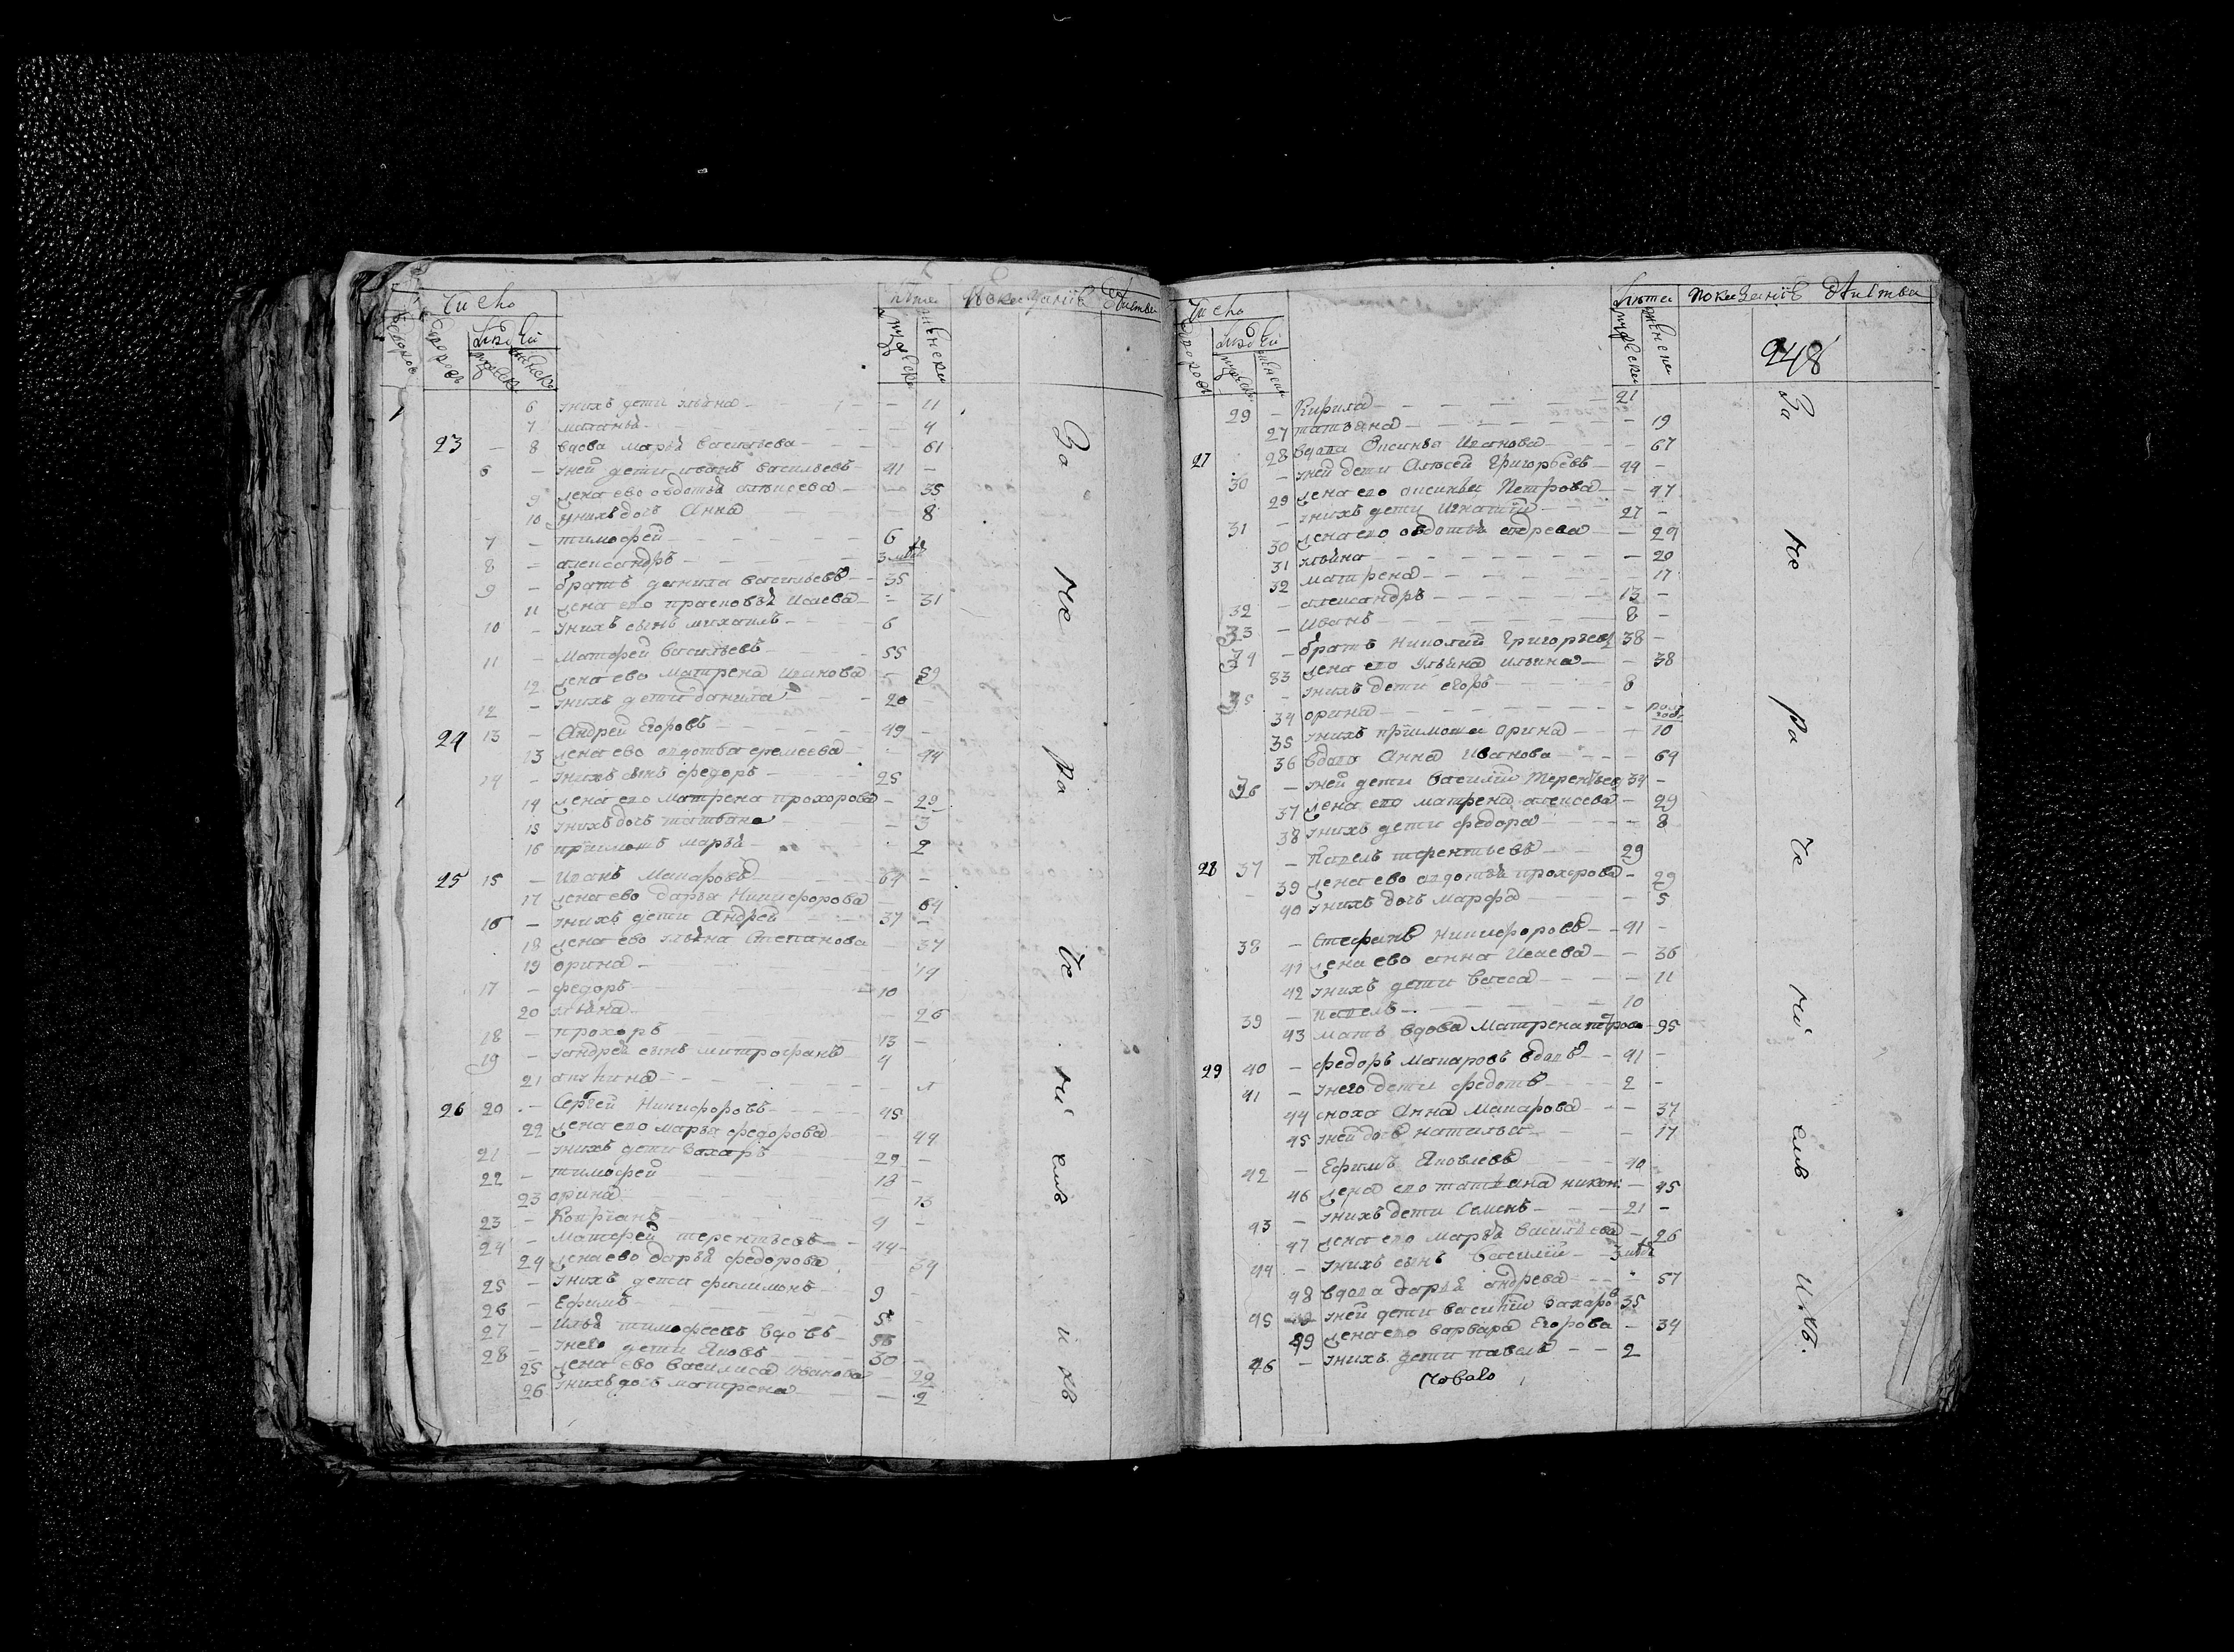 Число
Людей
Лѣта
Показаніе действа
6 уних дети ульяна — — 11
7 маланья — — 4
23 — 8 вдова марья васильева — — 61
6 — уней дети иванъ васильевъ — 41 —
9 жена ево овдотья алѣксеева — — 35
10 уних дочь Анна — 8
7 — тимофей — — 6
8 — александръ — — 3
9 — братъ данила васильевъ — 35
11 жена его прасковья Исаева — — 31
10 — уних сынъ михаилъ — 6
11 — Матфей васильевъ — 55
12 жена ево Матрена Иванова — 59
12 — уних дети данила — 20
24 13 — Андрей Егоровъ — 49 —
13 жена ево авдотья еремеева — 44
14 — уних сынъ федоръ — 25
14 жена его Матрена прохорова — 29
15 уних дочь татьяна — — 3
16 пріимошъ марья — 2
25 15 — Иванъ Макаровъ — 64 —
17 жена ево дарья Никифорова — 64
16 — уних дети Андрей — 37 —
18 жена ево ульяна Степанова — 37
19 орина — 14
17 — федоръ — 10
20 ульяна — 26
18 — прохоръ — 13 —
19 — уандрея сынъ митрофанъ — 4
21 акулина —
26 20 — Сергей Никифоровъ — 45
22 жена его марья федорова — 44
21 — уних дети Захаръ — 29 —
22 — тимофей — 18 —
23 орина — 13
23 — Копріанъ — 4 —
24 — Матфей терентьевъ — 44 —
24 жена ево дарья федорова — 34
25 — уних дети филимонъ — 9
26 — Ефимъ — 5
27 — Илья тимофеевъ вдовъ — 56
28 — унего дети Яковъ — 30 —
25 жена ево василиса Иванова — 29
26 уних дочь матрена — 2
За
ме
ра
че
ні
емъ
и хъ
Число
Людей
Лѣта
Показаніе действа
248
29 — Кирила — 21
27 татьяна — — 19
27 28 вдова Оксинья Иванова — 67
30 — уней дети Алексей Григорьевъ — 44 —
29 жена его аксинья Петрова — — 47
31 — уних дети Игнатій — 27 —
30 жена его овдотья андрева — — 29
31 ульяна — — 20
32 матрена — — 17
32 — александръ — 13 —
33 — Иванъ — 8 —
34 — братъ Николай Григорьевъ 38 —
33 жена его Ульяна Ильина — — 38
35 — уних дети егоръ — 8
34 орина — — пол года
35 уних пріимошъ орина — — 10
36 вдова Анна Иванова — — 64
36 — уней дети василій Терентьевъ 34 —
37 жена его матрена алексева — 29
38 уних дети федора — — 8
28 37 — Павелъ терентьевъ — 29
39 жена ево авдотья прохорова — 29
40 уних дочь марфа — — 5
38 — Стефанъ Никифоровъ — 41 —
41 жена ево анна Исаева — — 36
42 уних дети васса — 11
39 — павелъ — 10
43 мать вдова Матрена петрова — 95
29 40 — федоръ Макаровъ вдовъ — 41 —
41 — унего дети федотъ — 2 —
44 сноха Анна Макарова — — 37
45 уней дочь наталья — — 17
42 — Ефимъ Яковлевъ — 40
46 жена его татьяна никон: — 45
43 — уних дети Семенъ — 21 —
47 жена его марья васильева — 26
44 — уних сынъ василій — 3
48 вдова дарья андрева — — 57
45 уней дети василій Захаровъ 35
49 жена его варвара Егорова — 34
46 — уних дети павелъ — 2
За
ме
ра
че
ні
емъ
и хъ.